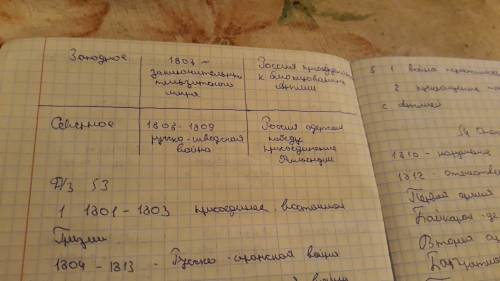 Западное
1807 –
заключительный
тильзитского
мира
Россия присоединилась
к блокированию
Англии
Северное
1808-1809
русско-шведская
война
Россия одержала
победу
присоединение
Финляндии
Д/З §3
1 1801 – 1803 присоединение восточной
Грузии
1804 – 1813 – Русско-иранская война
5 1 война
2
с Англией
§4
1810 –
1812 – отечеств
Первая армия
Барклая-де
Вторая ар
Багратио